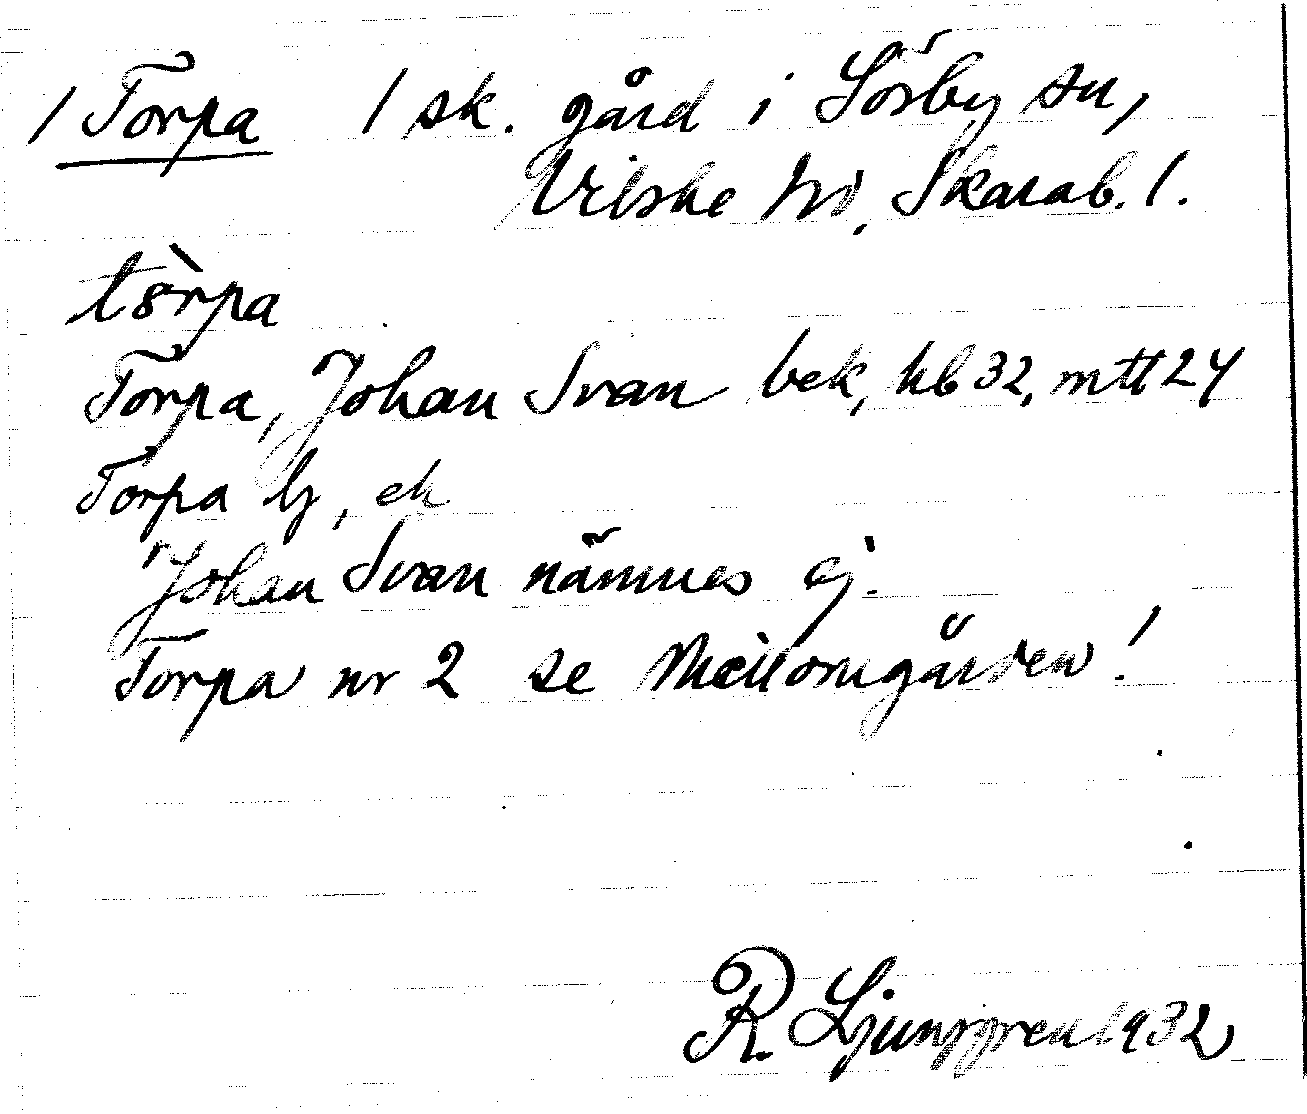 1 Torpa 1 sk. gård i Sörby sn,
Vilske hd, Skarab. l.
tòrpa
Torpa, Johan Svan bek, hb 32, mtt 24
Torpa lj, ek
Johan Svan nämnes ej.
Torpa nr 2 se Mellomgården!
R. Ljunggren 1932